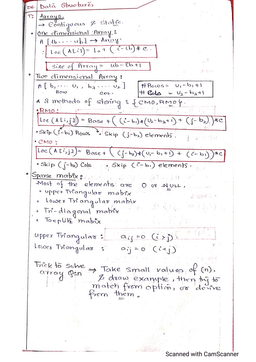 Data Structures
Arrays
→ Contiguous & static.
• One dimensional Array :
A [lb ..... ub] → Array.
Loc (A[i]) = L0 + (i - lb) * c
Size of Array = ub - lb + 1
• Two dimensional Array :
A [ b1 ... u1 , b2 ... u2 ]
Row Col.
# Rows = u1 - b1 + 1
# Cols = u2 - b2 + 1
2 methods of storing : {CMO, RMO}.
• RMO :
Loc(A[i,j]) = Base + ((i - b1) * (u2 - b2 + 1) + (j - b2)) * c
• Skip (i - b1) Rows • Skip (j - b2) elements.
• CMO :
Loc(A[i,j]) = Base + ((j - b2) * (u1 - b1 + 1) + (i - b1)) * c
• Skip (j - b2) Cols • Skip (i - b1) elements.
• Sparse matrix :
Most of the elements are 0 or NULL.
• Upper Triangular matrix
• Lower Triangular matrix
• Tri-diagonal matrix
• Toeplitz matrix
Upper Triangular : aij = 0 (i > j)
Lower Triangular : aij = 0 (i < j)
Trick to solve array Qsn → Take small values of (n).
& draw example, then try to
match from option, or derive
from them.
Scanned with CamScanner